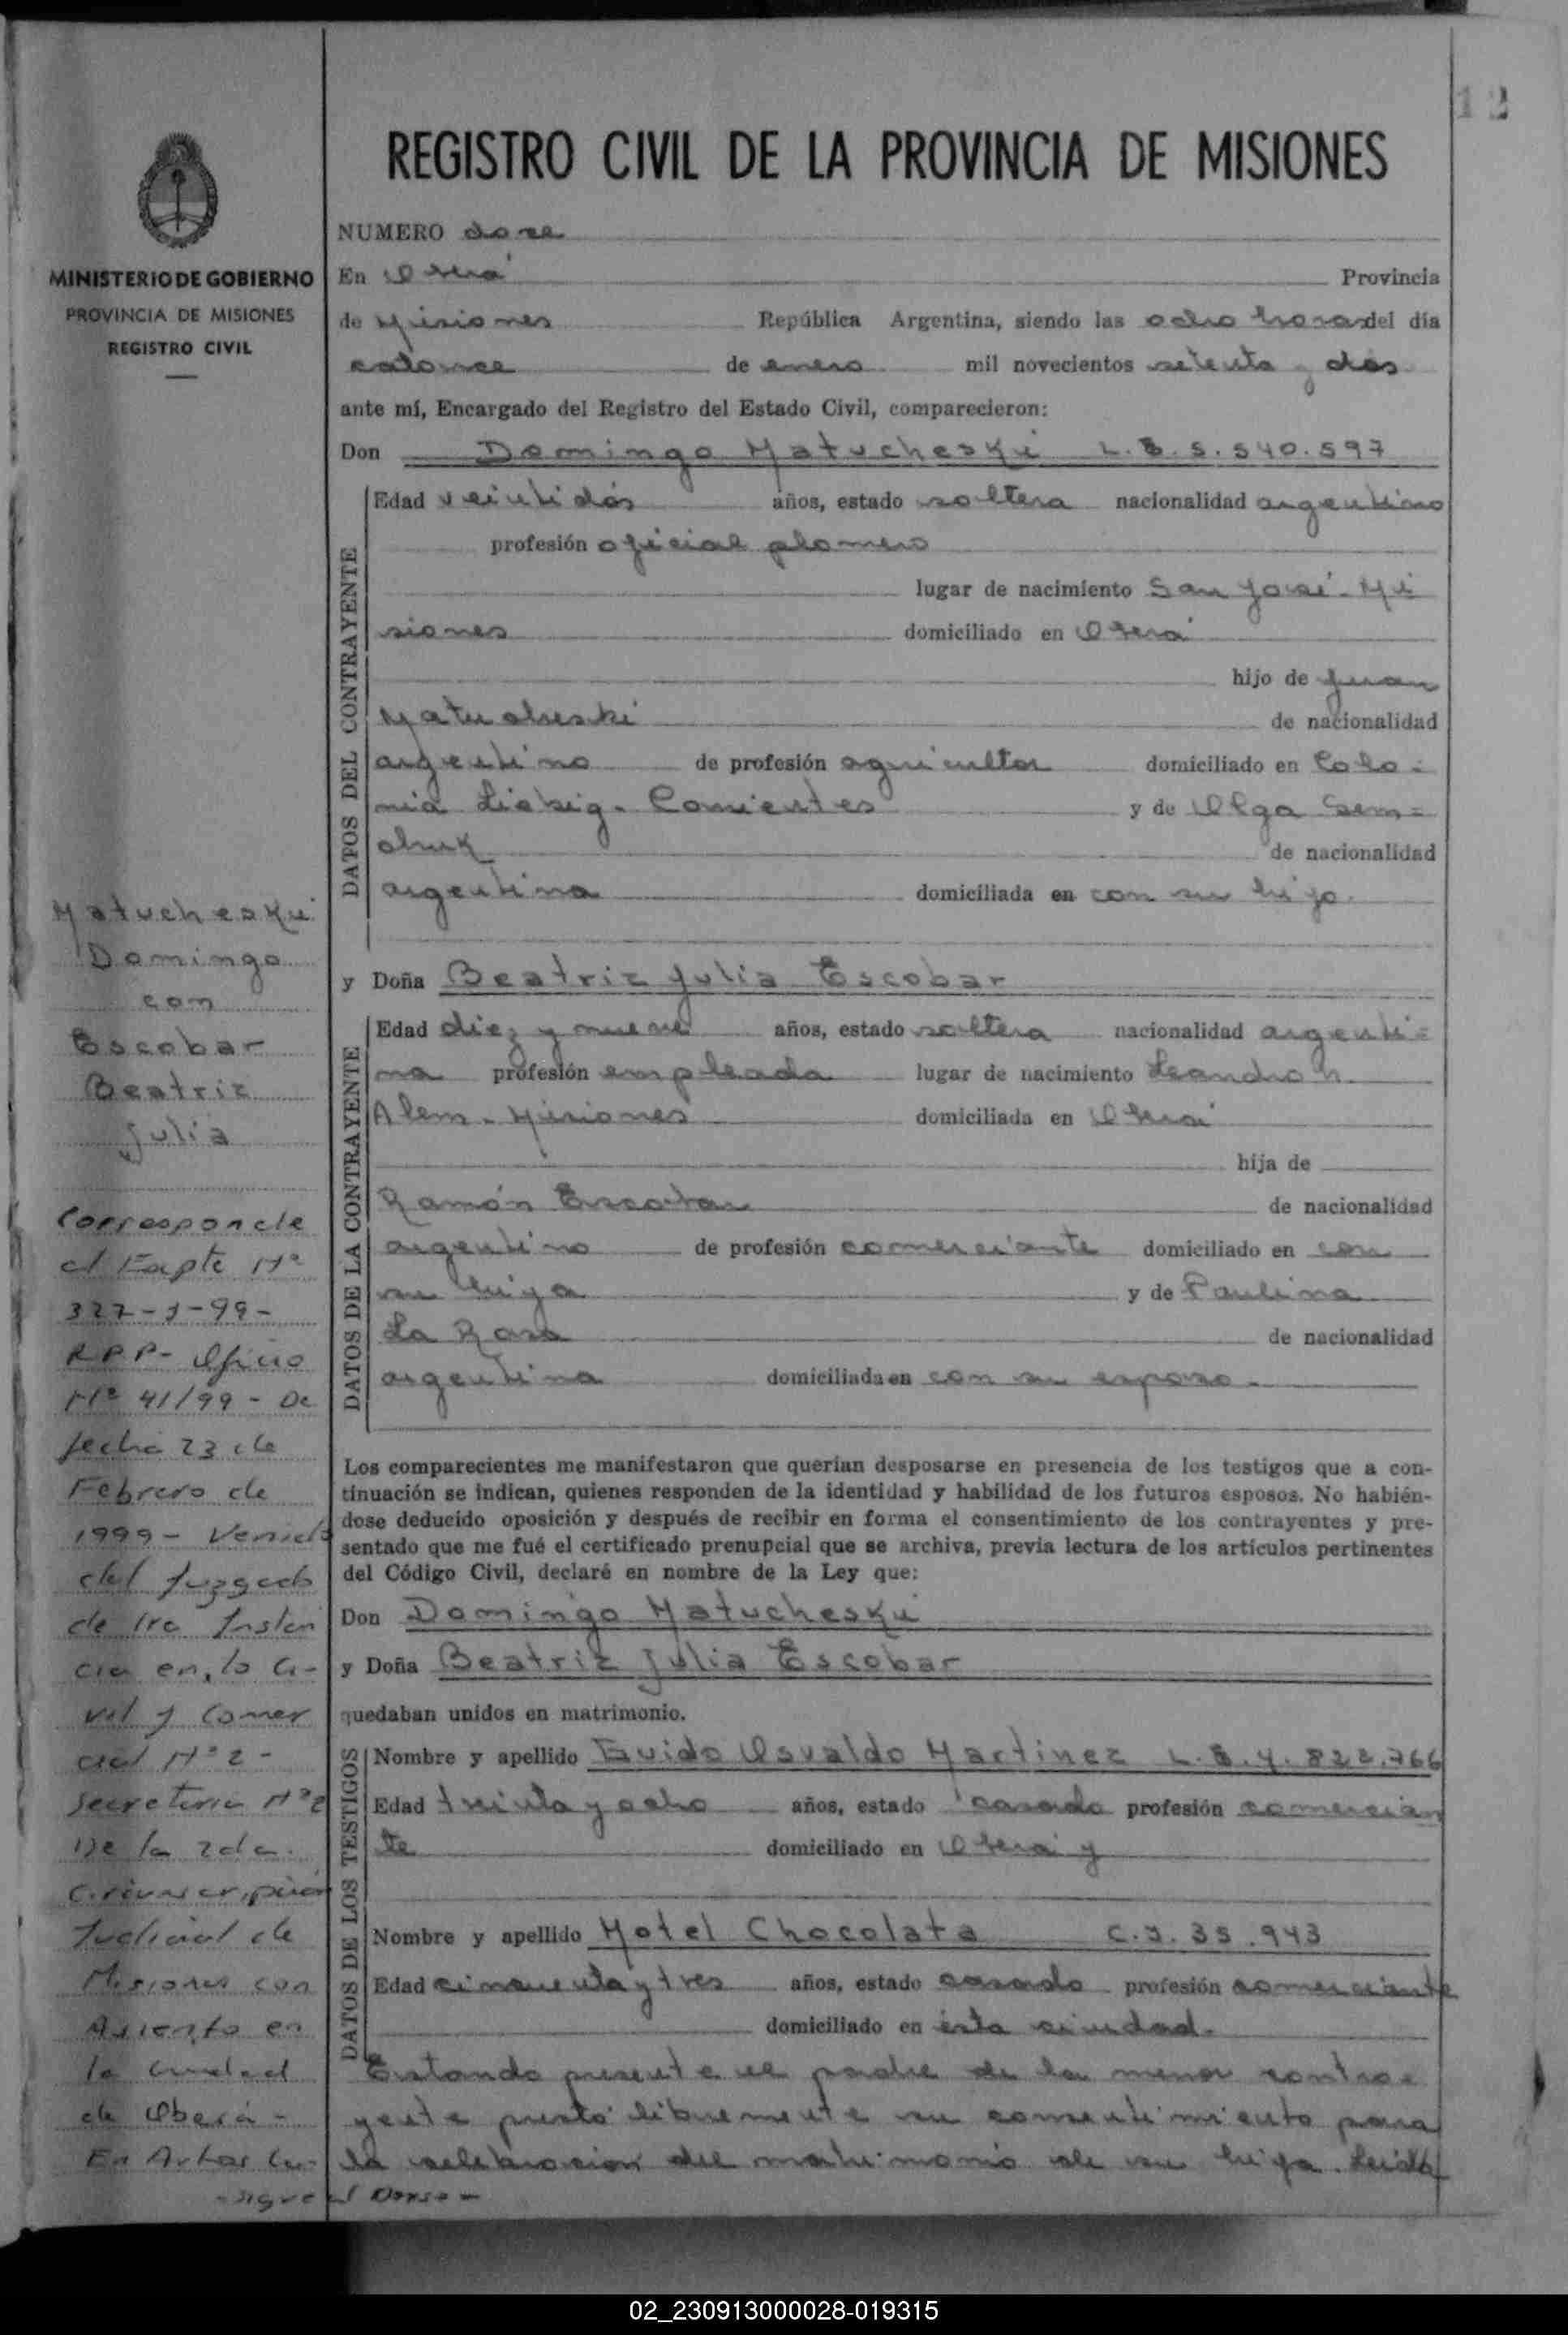 12
REGISTRO CIVIL DE LA PROVINCIA DE MISIONES
MINISTERIO DE GOBIERNO
PROVINCIA DE MISIONES
REGISTRO CIVIL
NUMERO doce
En Oberá Provincia
de Misiones República Argentina, siendo las ocho horas del día
catorce de enero mil novecientos setenta y dos
ante mí, Encargado del Registro del Estado Civil, comparecieron:
Don Domingo Matucheski L.E. 5.540.597
DATOS DEL CONTRAYENTE
Edad veintidós años, estado soltero nacionalidad argentino
profesión oficial plomero
lugar de nacimiento San José - Mi
siones domiciliado en Oberá
hijo de Juan
Matucheski de nacionalidad
argentino de profesión agricultor domiciliado en Colo-
nia Liebig - Corrientes y de Olga Sem=
chuk de nacionalidad
argentina domiciliada en con su hijo.
y Doña Beatriz Julia Escobar
DATOS DE LA CONTRAYENTE
Edad diez y nueve años, estado soltera nacionalidad argenti=
na profesión empleada lugar de nacimiento Leandro N.
Alem - Misiones domiciliada en Oberá
hija de
Ramón Escobar de nacionalidad
argentino de profesión comerciante domiciliado en con
su hija y de Paulina
La Rosa de nacionalidad
argentina domiciliada en con su esposo.
Los comparecientes me manifestaron que querían desposarse en presencia de los testigos que a con-
tinuación se indican, quienes responden de la identidad y habilidad de los futuros esposos. No habién-
dose deducido oposición y después de recibir en forma el consentimiento de los contrayentes y pre-
sentado que me fué el certificado prenupcial que se archiva, previa lectura de los artículos pertinentes
del Código Civil, declaré en nombre de la Ley que:
Don Domingo Matucheski
y Doña Beatriz Julia Escobar
quedaban unidos en matrimonio.
DATOS DE LOS TESTIGOS
Nombre y apellido Guido Osvaldo Martinez L.E. 4.822.766
Edad treinta y ocho años, estado casado profesión comercian
te domiciliado en Oberá y
Nombre y apellido Motel Chocolata C.I. 35.943
Edad cincuenta y tres años, estado casado profesión comerciante
domiciliado en ésta ciudad.
Estando presente el padre de la menor contra=
yente prestó libremente su consentimiento para
la celebración del matrimonio de su hija. Leída
Matucheski
Domingo
con
Escobar
Beatriz
Julia
Corresponde
al Expte Nº
327-J-99-
RPP- Oficio
Nº 41/99 - De
fecha 23 de
Febrero de
1999 - Venido
del Juzgado
de 1ra Instan
cia en lo Ci-
vil y Comer
cial Nº 2 -
Secretaria Nº 2
De la 2da.
Circunscripción
Judicial de
Misiones con
Asiento en
la ciudad
de Oberá -
En Autos Ca-
- sigue al Dorso -
02_230913000028-019315